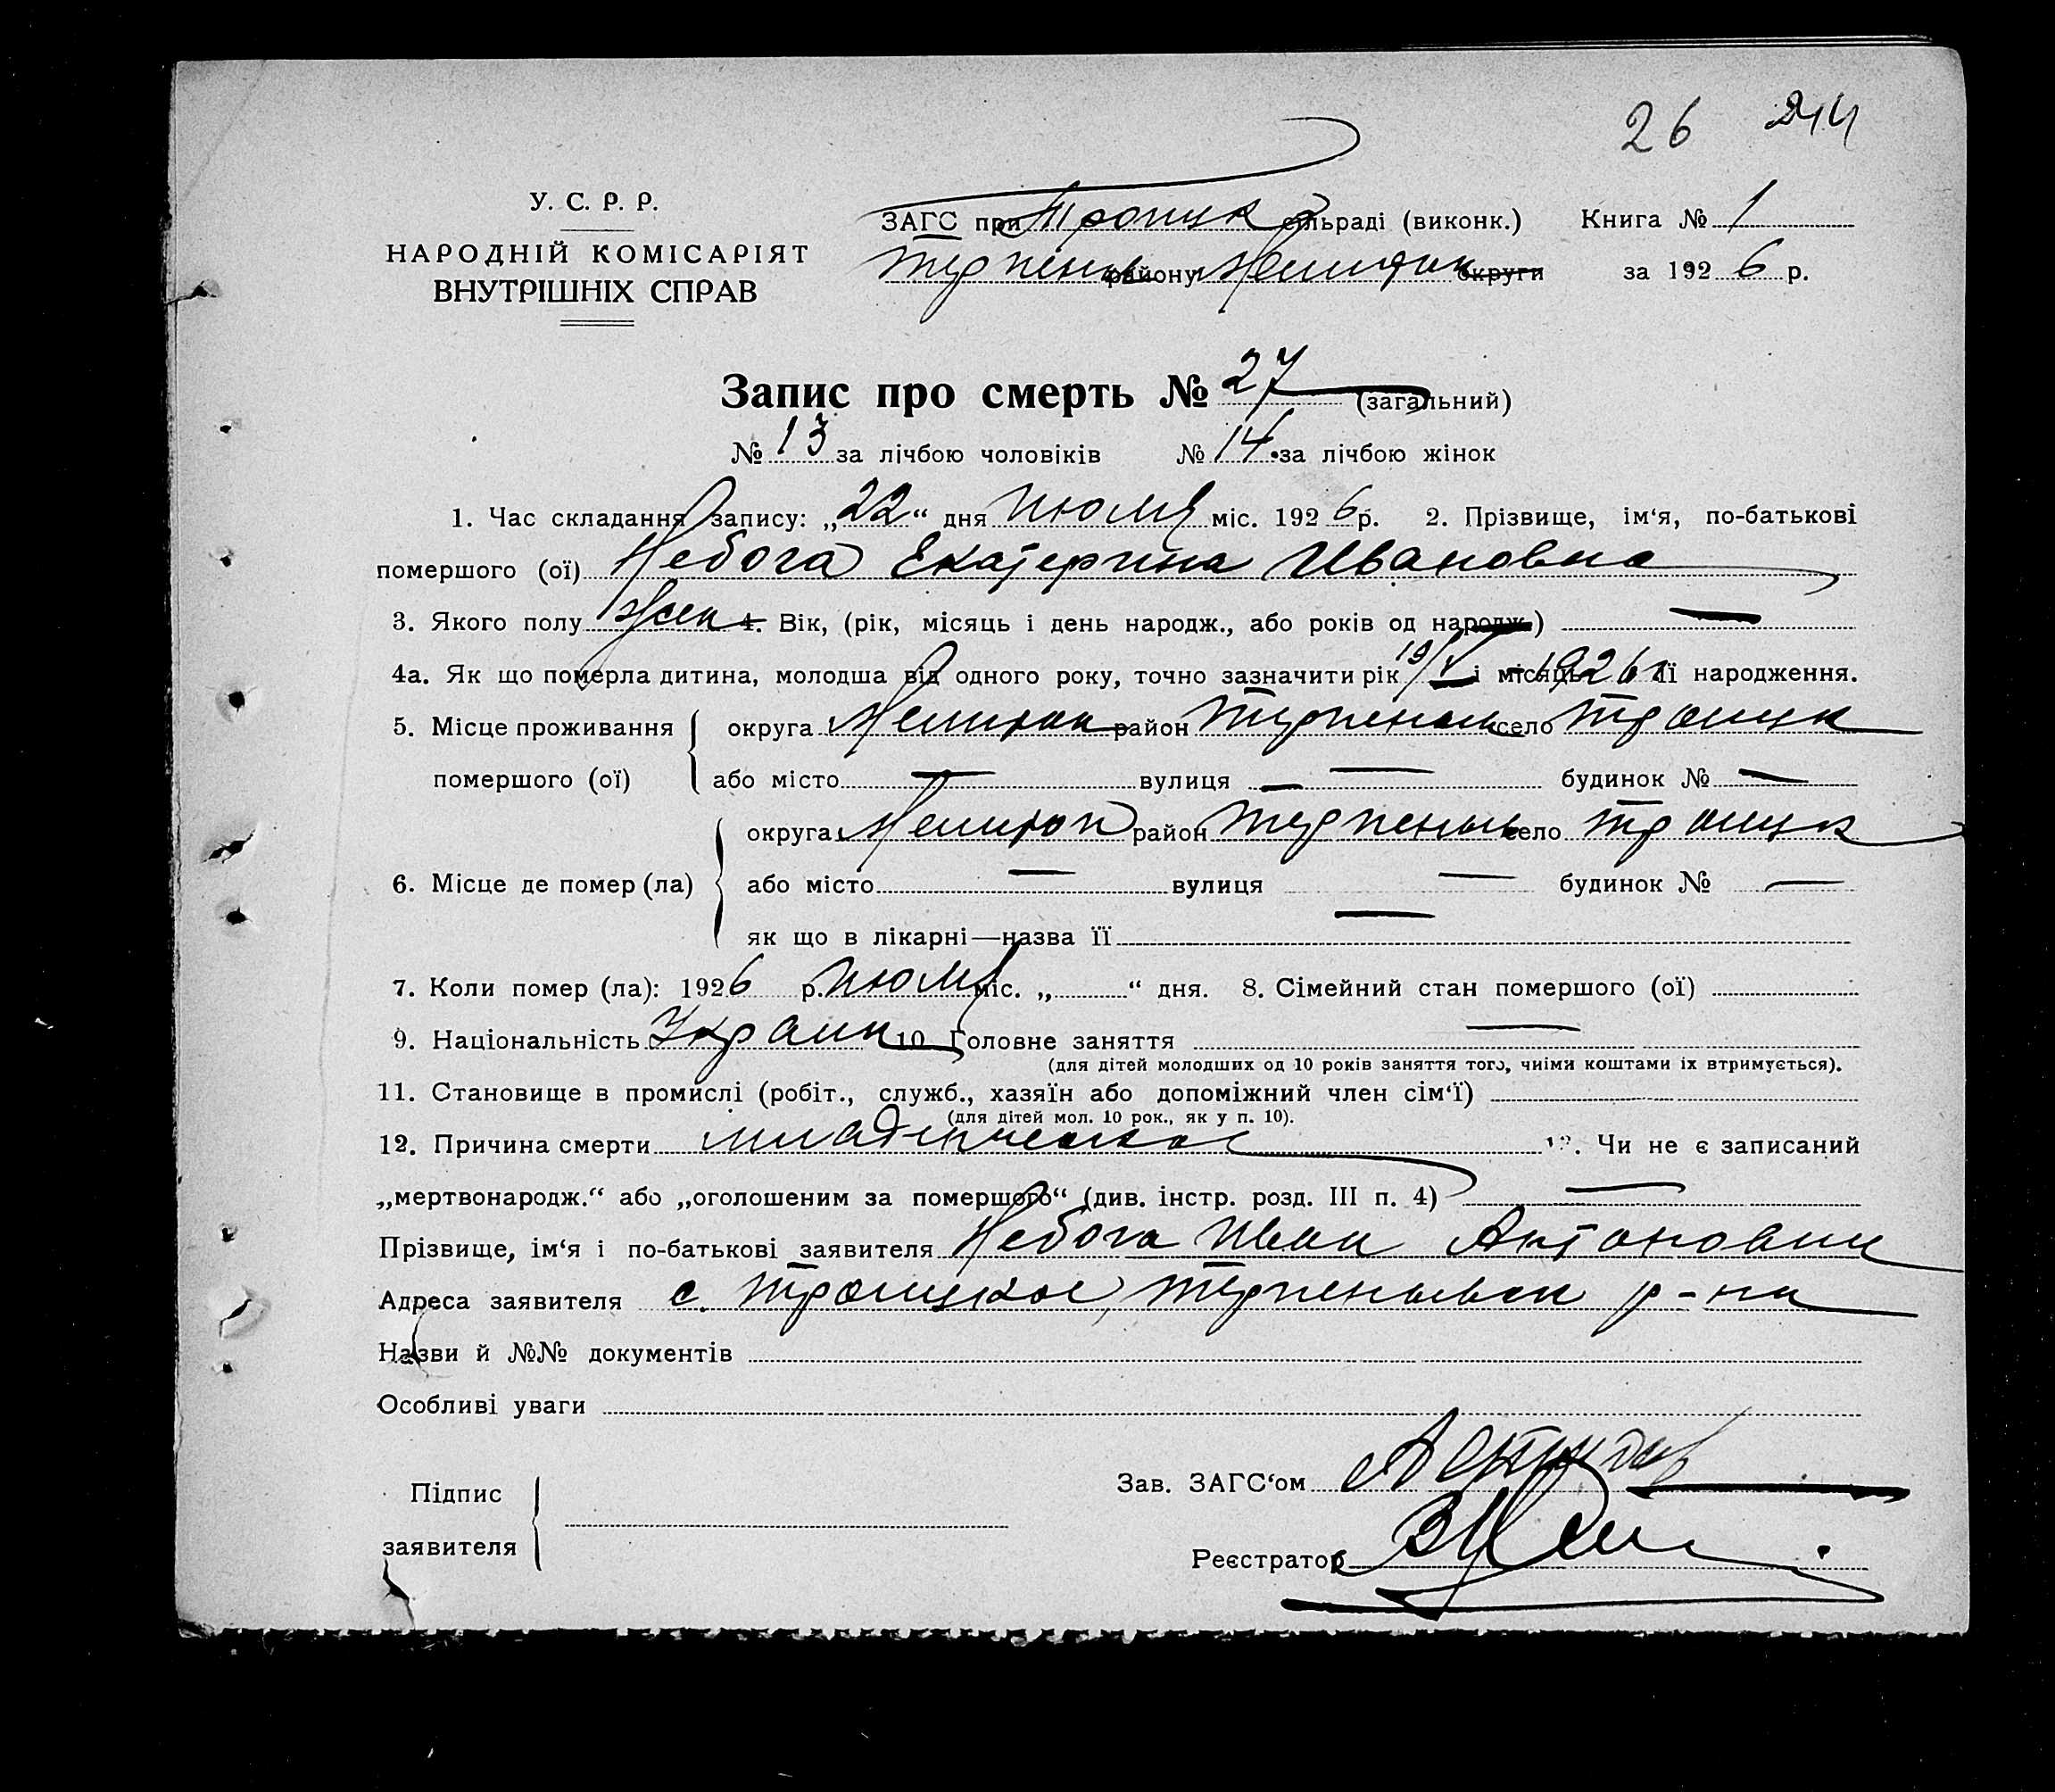 26 244
У. С. Р. Р.
НАРОДНІЙ КОМІСАРІЯТ
ВНУТРІШНІХ СПРАВ
ЗАГС при Троицк сільраді (виконк.) Книга № 1
Терпеньев району Мелитоп округи за 1926 р.
Запис про смерть № 27 (загальний)
№ 13 за лічбою чоловіків № 14 за лічбою жінок
1. Час складання запису: „22“ дня Июля міс. 1926 р. 2. Прізвище, ім‘я, по-батькові
помершого (ої) Небога Екатерина Ивановна
3. Якого полу жен 4. Вік, (рік, місяць і день народж., або років од народж.) —
4а. Як що померла дитина, молодша від одного року, точно зазначити рік 19/V і місяць 1926 її народження.
5. Місце проживання округа Мелитоп район Терпеньев село Троицк
помершого (ої) або місто — вулиця — будинок № —
округа Мелитоп район Терпеньев село Троицк
6. Місце де помер (ла) або місто — вулиця — будинок № —
як що в лікарні—назва її —
7. Коли помер (ла): 1926 р. Июля міс. „ “ дня. 8. Сімейний стан помершого (ої)
9. Національність Украин 10. Головне заняття —
(для дітей молодших од 10 років заняття того, чиїми коштами їх втримується).
11. Становище в промислі (робіт., служб., хазяїн або допоміжний член сім‘ї)
(для дітей мол. 10 рок., як у п. 10).
12. Причина смерти младенческая 13. Чи не є записаний
„мертвонародж.“ або „оголошеним за помершого“ (див. інстр. розд. III п. 4) —
Прізвище, ім‘я і по-батькові заявителя Небога Иван Антонович
Адреса заявителя с. Троицкое, Терпеньевск р-на
Назви й №№ документів
Особливі уваги
Зав. ЗАГС‘ом
Підпис
заявителя
Реєстратор